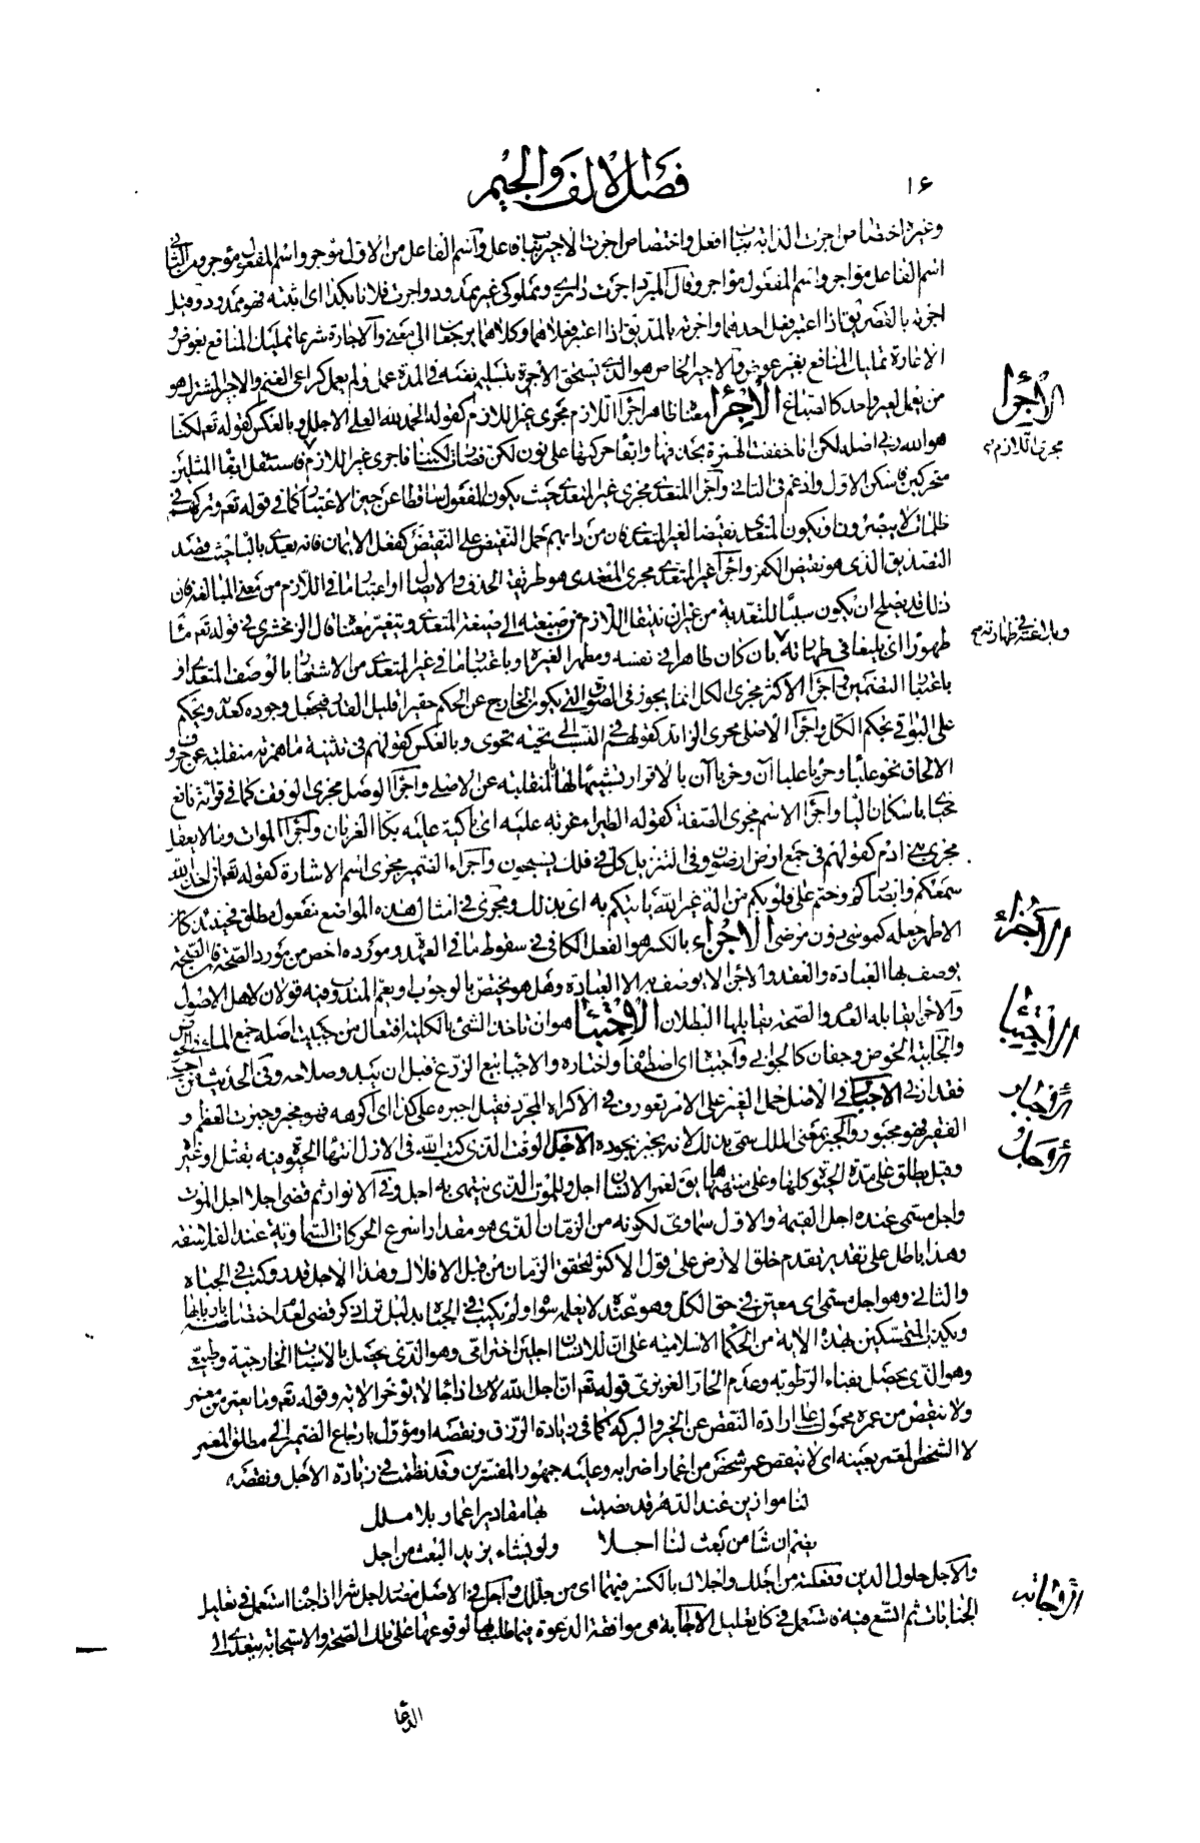 ١٦
فصل الالف والجيم
وغيره اختصاص اجرت الدابة بباب افعل واختصاص اجرت الاجير بباب فاعل واسم الفاعل من الاول موجر واسم المفعول موجر ومن الثاني
اسم الفاعل مؤاجر واسم المفعول مؤاجر وقال المبرد اجرت داري ومملوكي غير ممدود واجرت فلانا بكذا اى اثبته فهو ممدود وقيل
اجرته بالقصر يق اذا اعتبر فعل احدهما واجرته بالمد يق اذا اعتبر فعلاهما وكلاهما يرجعان الى معنى والاجارة شرعا تمليك المنافع بعوض و
الاعارة تمليك المنافع بغير عوض والاجير الخاص هو الذي يستحق الاجرة بتسليم نفسه في المدة عمل او لم يعمل كراعي الغنم والاجير المشترك هو
من يعمل لغير واحد كالصباغ الاجرا معناه ظاهر اجرا اللازم مجرى غير اللازم كقوله الحمد لله العلى الاجلل وبالعكس كقوله تعم لكنا
هو الله ربى اصله لكن انا خففت الهمزة بحذفها والقا حركتها على نون لكن فصار لكننا فاجرى غير اللازم فاستثقل التقا المثلين
متحركين فاسكن الاول وادغم في الثاني واجرا المتعدى مجرى غير المتعدى حيث يكون المفعول ساقطا عن حيز الاعتبار كما في قوله تعم وتركهم في
ظلمات لا يبصرون او يكون المتعدى نقيضا لغير المتعدى فان من دابهم حمل النقيض على النقيض كفعل الايمان فانه يعدى بالبا حيث قصد
التصديق الذي هو نقيض الكفر واجرا غير المتعدى مجرى المتعدى هو طريقة الحذف والايصال او اعتبار ما في اللازم من معنى المبالغة فان
ذلك قد يصلح ان يكون سببا للتعدية من غير ان ينتقل اللازم من صيغته الى صيغة المتعدى ويتغير معناه قال الزمخشرى في قوله تعم ماء
طهورا اى بليغا في طهارته بان كان طاهرا في نفسه ومطهرا لغيره او باعتبار ما في غير المتعدى من الاشتهار بالوصف المتعدى او
باعتبار التضمين واجرا الاكثر مجرى الكل انما يجوز في الصورة التي يكون الخارج عن الحكم حقيرا قليل القدر فيجعل وجوده كعدمه ويحكم
على البواقي بحكم الكل واجرا الاصلى مجرى الزائد كقولهم في النسب الى تحية تحوى وبالعكس كقولهم في تثنية ما همزته منقلبة عن حرف
الالحاق نحو علبا وحربا علباآن وحرباآن بالاقرار تشبيها لها بالمنقلبة عن الاصلى واجرا الوصل مجرى الوقف كما في قراءة نافع
محياى باسكان اليا واجرا الاسم مجرى الصفة كقوله الطير اغربة عليه اى باكية عليه بكا الغربان واجرا الموات وما لا يعقل
مجرى بنى ادم كقولهم في جمع ارض ارضون وفي التنزيل كل في فلك يسبحون واجراء الضمير مجرى اسم الاشارة كقوله تعم ان اخذ الله
سمعكم وابصاركم وختم على قلوبكم من اله غير الله ياتيكم به اى بذلك ومجرى في امثال هذه المواضع مفعول مطلق فحينئذ كان
الاظهر جعله كموسى دون مرضى الاجزاء بالكسر هو الفعل الكافى في سقوط ما في العهدة ومورده اخص من مورد الصحة فان الصحة
يوصف بها العبادة والعقد والاجزاء لا يوصف به الا العبادة وهل هو يختص بالوجوب او يعم المندوب فيه قولان لاهل الاصول
والاجزا يقابله العدم والصحة يقابلها البطلان الاجتبا هو ان تاخذ الشئ بالكلية افتعال من جبيت اصله جمع الماء في الحوض
والجابية الحوض وجفان كالجوابى واجتباه اى اصطفاه واختاره والاجبا بيع الزرع قبل ان يبدو صلاحه وفي الحديث من اجبى
فقد اربى الاجبار في الاصل حمل الغير على الامر تعورف في الاكراه المجرد فقيل اجبره على كذا اى اكرهه فهو مجبر وجبرت العظم و
الفقير فهو مجبور والجبر بمعنى الملك سمى بذلك لانه يجبر بجوده الاجل الوقت الذي كتب الله في الازل انتها الحيوة فيه بقتل او غيره
وقيل يطلق على مدة الحيوة كلها وعلى منتهاها يق لعمر الانسان اجل وللموت الذي ينتهى به اجل وفي الانوار ثم قضى اجلا اجل الموت
واجل مسمى عنده اجل القيمة والاول سماوى لكونه من الزمان الذي هو مقدار اسرع الحركات السماوية عند الفلاسفة
وهذا باطل على تقدير تقدم خلق الارض على قول الاكثر لتحقق الزمان من قبل الافلاك وهذا الاجل قدر وكتب في الجباه
والثاني وهو اجل مسمى اى معين في حق الكل وهو عنده لا يعلمه سواه ولم يكتب في الجباه بدليل تراني كر قضى لعدم اختصاصه بارباب
ويكذب المتمسكين بهذه الاية من الحكما الاسلامية على ان للانسان اجلين اخترامى وهو الذي يحصل بالاسباب الخارجية وطبيعى
وهو الذي يحصل بفناء الرطوبة وعدم الحار الغريزى قوله تعم ان اجل الله لات اذا جا لا يؤخر الاية وقوله تعم وما يعمر من معمر
ولا ينقص من عمره محمول على ارادة النقص عن الخير والبركة كما في زيادة الرزق ونقصه او مؤول بارجاع الضمير الى مطلق المعمر
لا الشخص المعمر بعينه اى لا ينقص عمر شخص من اعمار اضرابه وعليه جمهور المفسرين وقد نظمت في زيادة الاجل ونقصه
لنا موازين عند الدهر قد نصبت بها مقادير اعمار بلا ملل
يضم ان شا من بعث لنا اجلا ولو يشاء يزيد البعث من اجل
والاجل حلول الدين وفعلته من اجلك واجلاك بالكسر فيهما اى من جللك واجل في الاصل مصدر اجل شرا اذا جناه استعمل في تعليل
الجنايات ثم اتسع فيه فاستعمل في كل تعليل الاجابة هى موافقة الدعوة فيما طلب بها لوقوعها على تلك الصحة والاستجابة يتعدى الى
الدعا
الاجرا
مجرى اللازم
وباعتبار في طهارته
الاجزاء
الاجتبا
الاجبار
الاجل
الاجابة